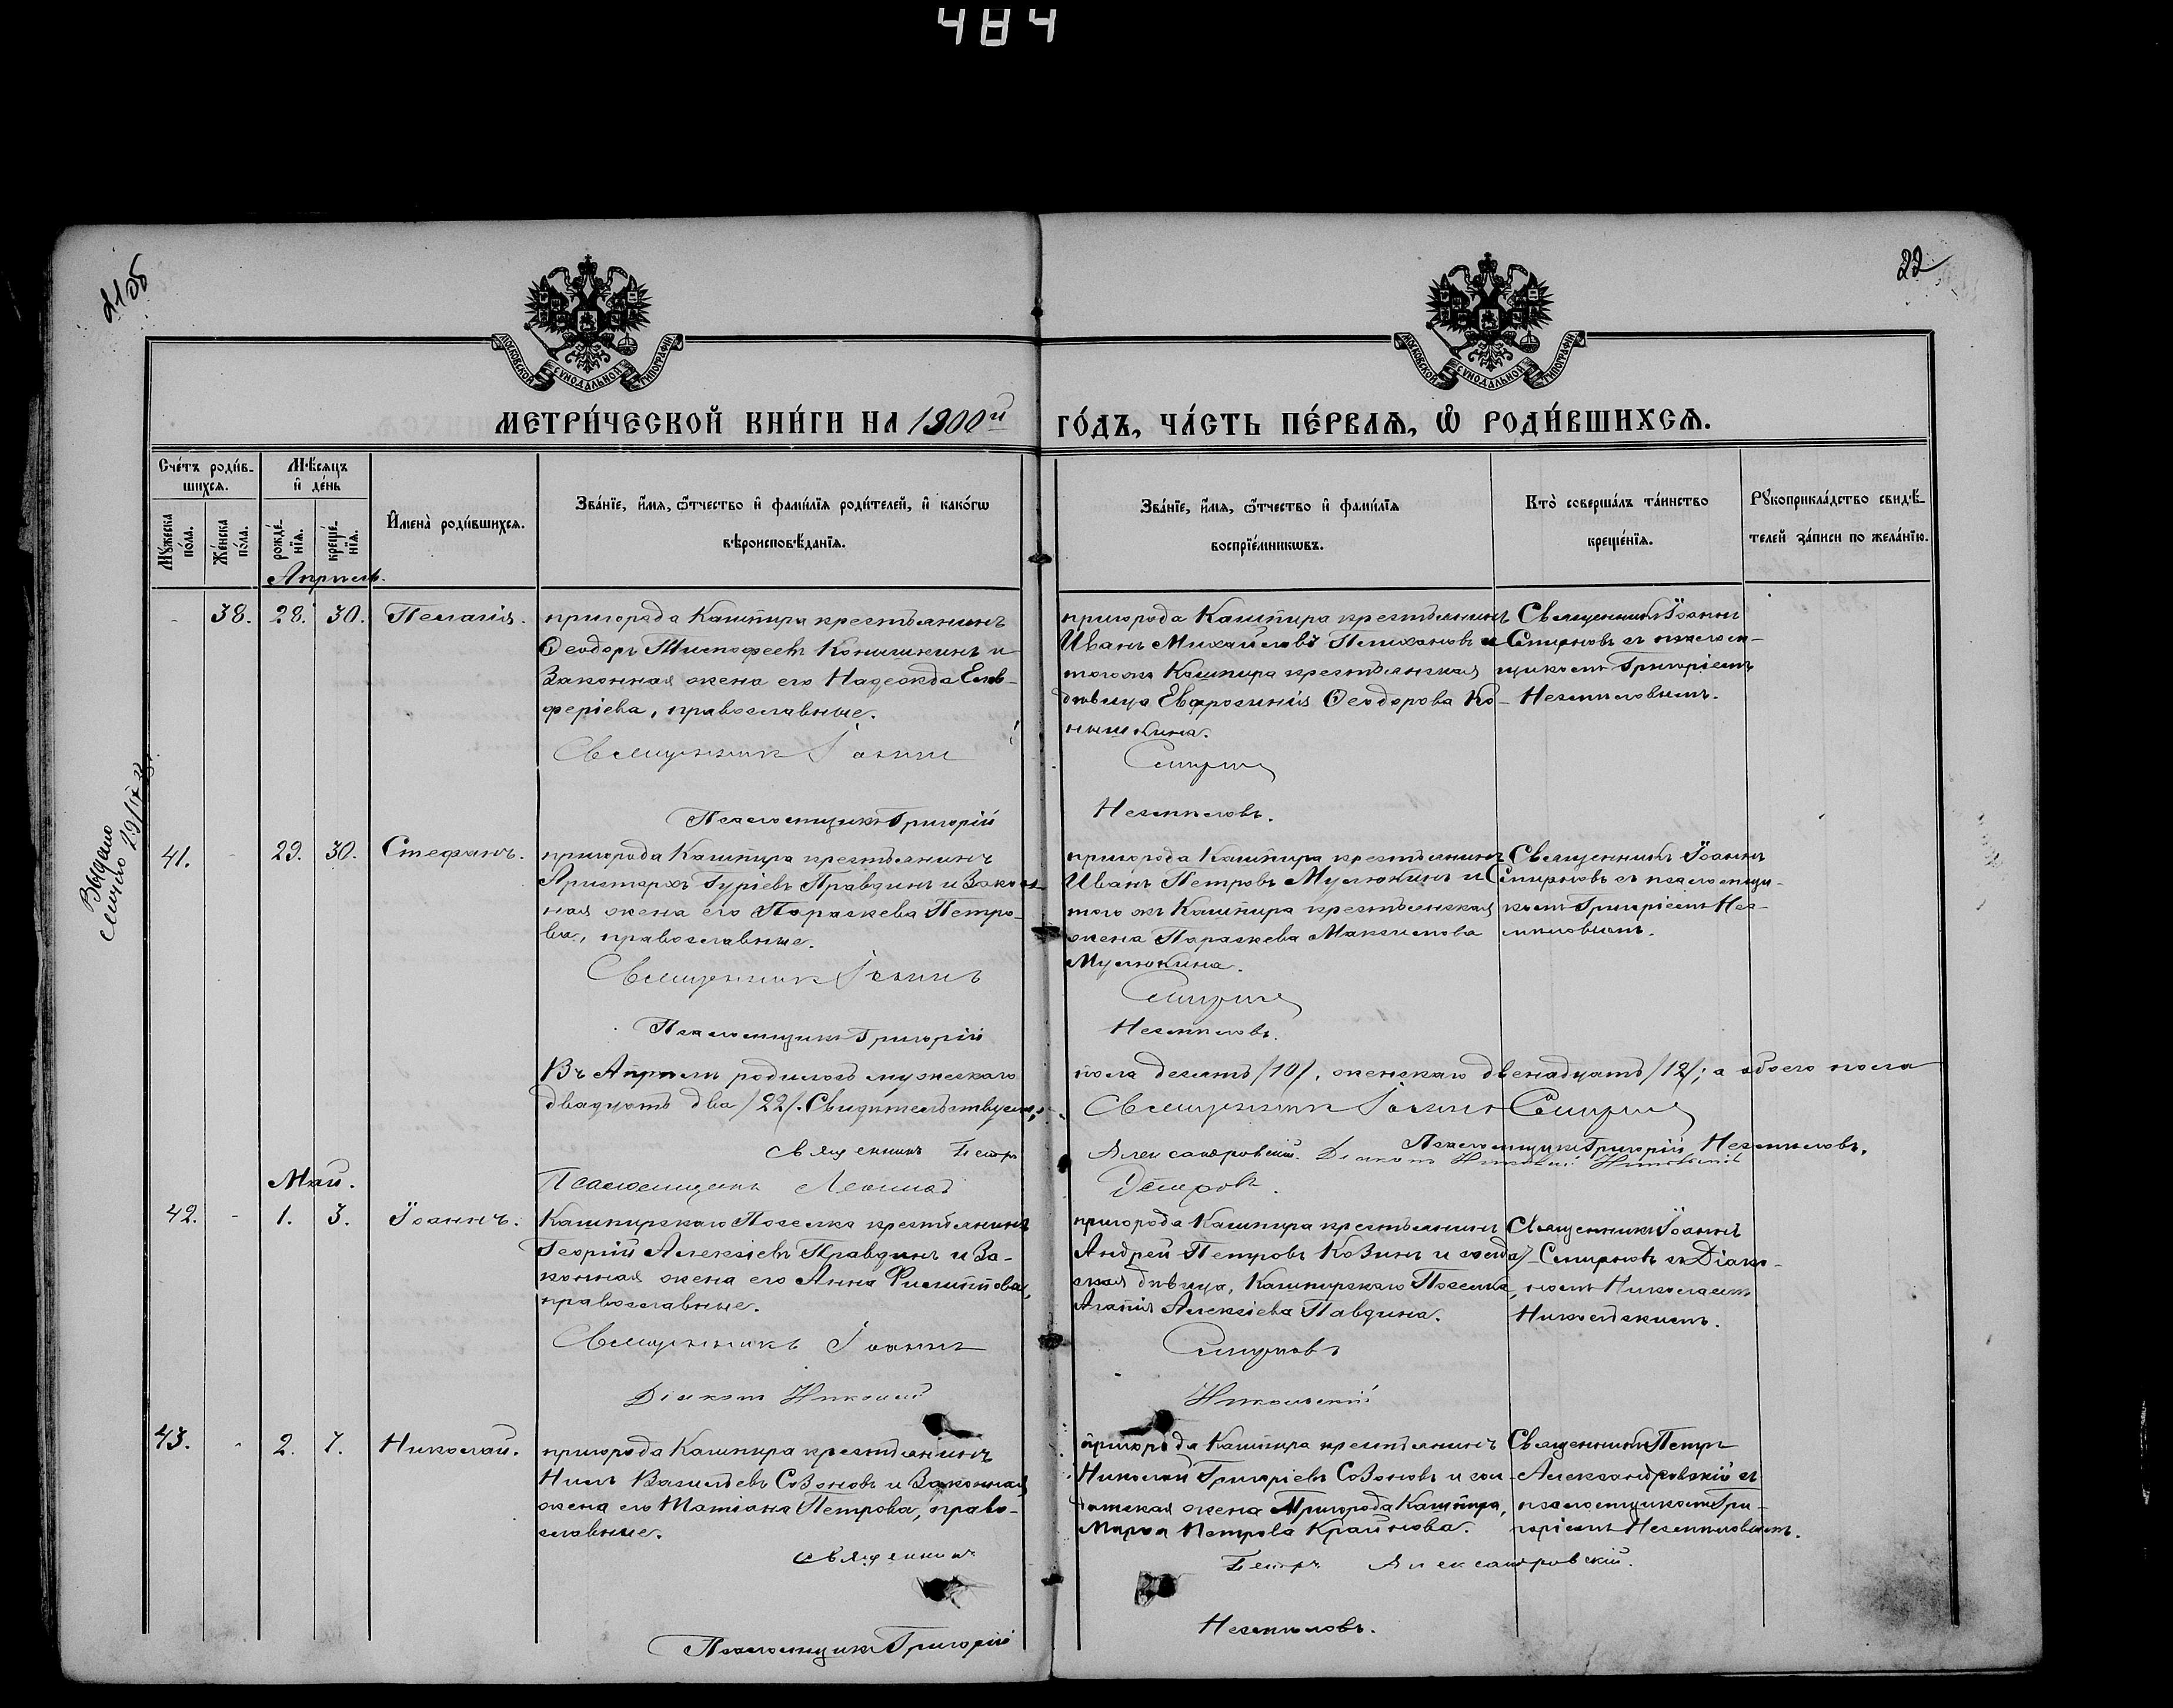 484
21об
22
МОСКОВСКОЙ СУНОДАЛЬНОЙ ТИПОГРАФІИ
МОСКОВСКОЙ СУНОДАЛЬНОЙ ТИПОГРАФІИ
МЕТРИ́ЧЕСКОЙ КНИ́ГИ НА 1900й ГО́ДЪ, ЧА́СТЬ ПЕ́РВАѦ, Ѡ҆ РОДИ́ВШИХСѦ.
Сче́тъ роди́в-
шихсѧ.
Мѣ́сяцъ
и҆ де́нь
Мꙋ́жеска по́ла.
Же́нска по́ла.
рожде́-
нїѧ.
креще́-
нїѧ.
И҆мена̀ роди́вшихсѧ.
Зва́нїе, и҆́мѧ, ѻ҆́тчество и҆ фами́лїѧ роди́телей, и҆ како́гѡ
вѣроисповѣ́данїѧ.
Зва́нїе, и҆́мѧ, ѻ҆́тчество и҆ фами́лїѧ
воспрїе́мникѡвъ.
Кто̀ соверша́лъ та́инство
креще́нїѧ.
Рꙋкоприкла́дство свидѣ́-
телей за́писи по жела́нїю.
Апрѣль.
- 38. 28. 30. Пелагія.
пригорода Кашпира крестьянинъ
Ѳеодоръ Тимофеевъ Конышкинъ и
законная жена его Надежда Елев-
феріева, православные.
Священникъ Іоаннъ
Псаломщикъ Григорій
пригорода Кашпира крестьянинъ
Иванъ Михайловъ Пелихановъ и
того же Кашпира крестьянская
дѣвица Евфросинія Ѳеодорова Ко-
нышкина.
Смирновъ
Незнмловъ.
Священникъ Іоаннъ
Смирновъ съ псалом-
щикомъ Григоріемъ
41. - 29. 30. Стефанъ.
пригорода Кашпира крестьянинъ
Аристархъ Гуріевъ Правдинъ и закон-
ная жена его Параскева Петро-
ва, православные.
Священникъ Іоаннъ
Псаломщикъ Григорій
пригорода Кашпира крестьянинъ
Иванъ Петровъ Мулюкинъ и
того же Кашпира крестьянская
жена Параскева Максимова
Мулюкина.
Смирновъ
Священникъ Іоаннъ
Смирновъ съ псаломщи-
комъ Григоріемъ
Выдано
29/IV
Въ Апрѣлѣ родилось мужескаго пола десять /10/, женскаго двенадцать /12/; а обоего пола
двадцать два /22/. Свидѣтельствуемъ: Священникъ Іоаннъ Смирновъ
Псаломщикъ Григорій
Священникъ Петръ Александровскій. Діаконъ Николай Никольскій
Псаломщикъ Леонидъ
Май.
42. - 1. 3. Іоаннъ.
Кашпирскаго Поселка крестьянинъ
Георгій Алексіевъ Правдинъ и за-
конная жена его Анна Филиппова,
православные.
Священникъ Іоаннъ
Діаконъ Николай
пригорода Кашпира крестьянинъ
Андрей Петровъ Козинъ и солдат-
ская дѣвица, Кашпирскаго Поселка,
Агапія Алексіева Павдина.
Смирновъ
Никольскій
Священникъ Іоаннъ
Смирновъ съ Діако-
номъ Николаемъ
Никольскимъ.
43. - 2. 7. Николай.
пригорода Кашпира крестьянинъ
Нилъ Васильевъ Созоновъ и законная
жена его Татіана Петрова, право-
славные.
Священникъ
Псаломщикъ Григорій
пригорода Кашпира крестьянинъ
Николай Григоріевъ Созоновъ и сол-
датская жена Пригорода Кашпира,
Марѳа Петрова Крайнова.
Петръ Александровскій.
Священникъ Петръ
Александровскій съ
псаломщикомъ Гри-
горіемъ